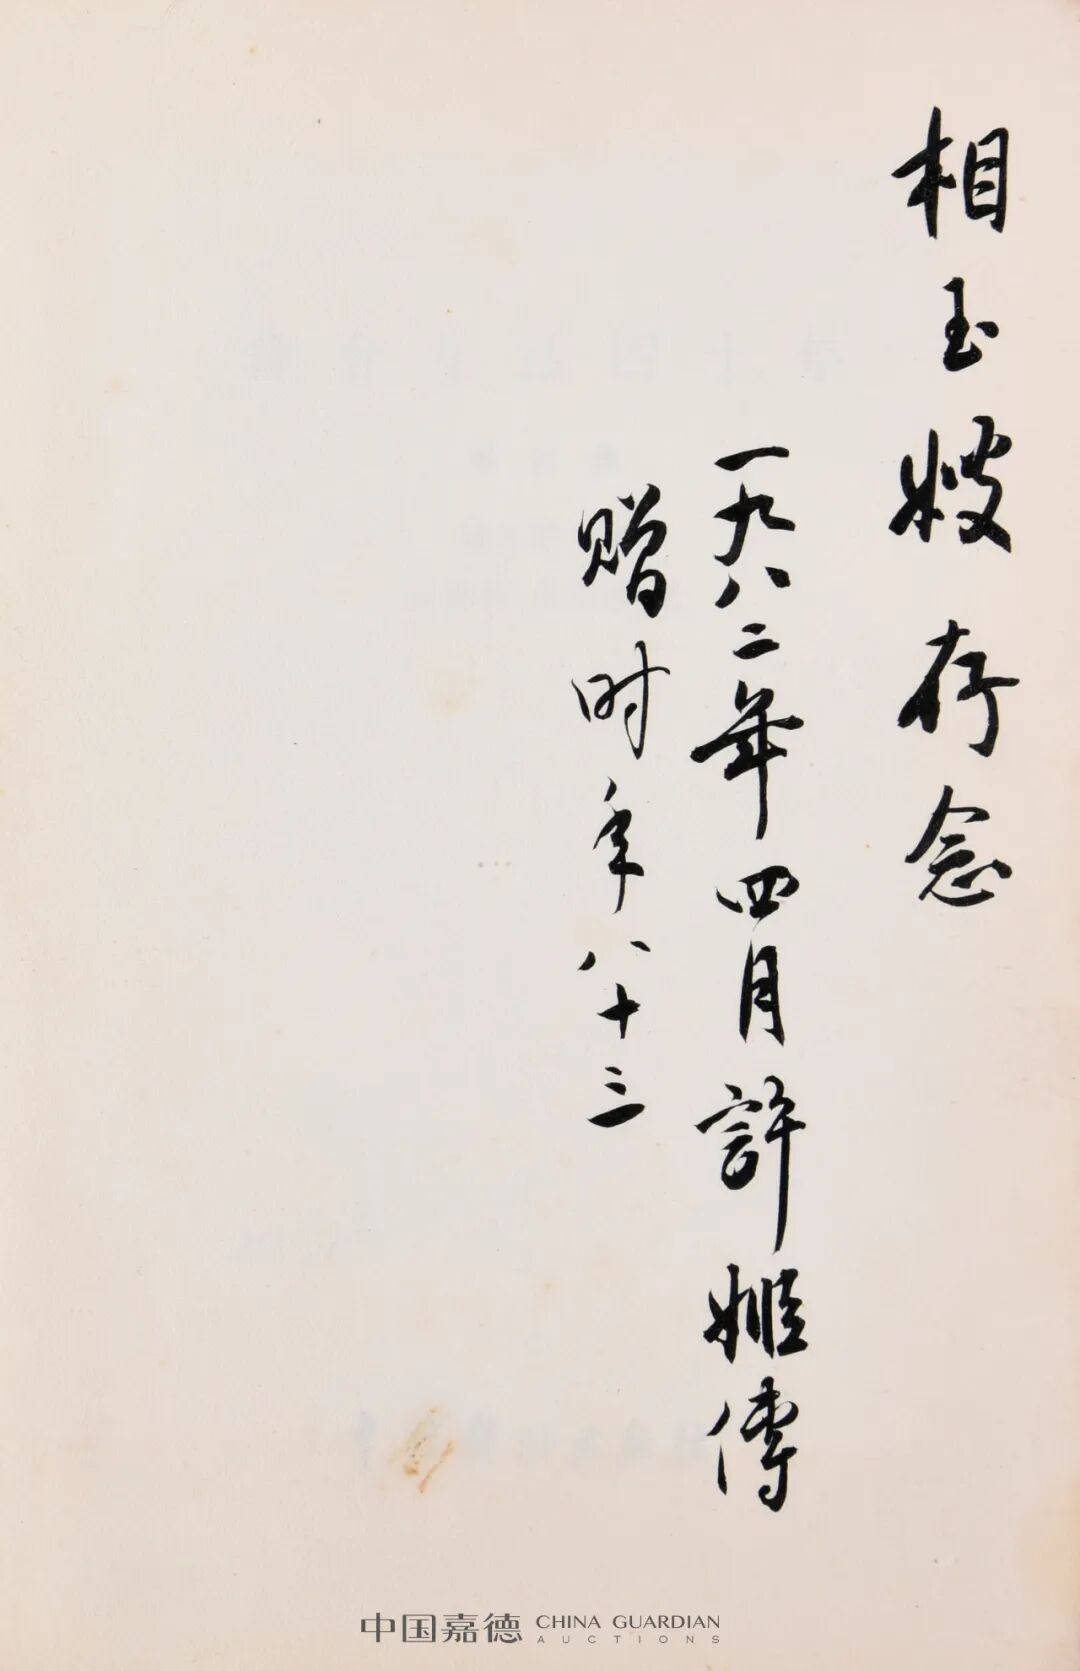 相玉嫂存念
一九八二年四月許姬傳
赠时年八十三
中国嘉德 CHINA GUARDIAN
AUCTIONS